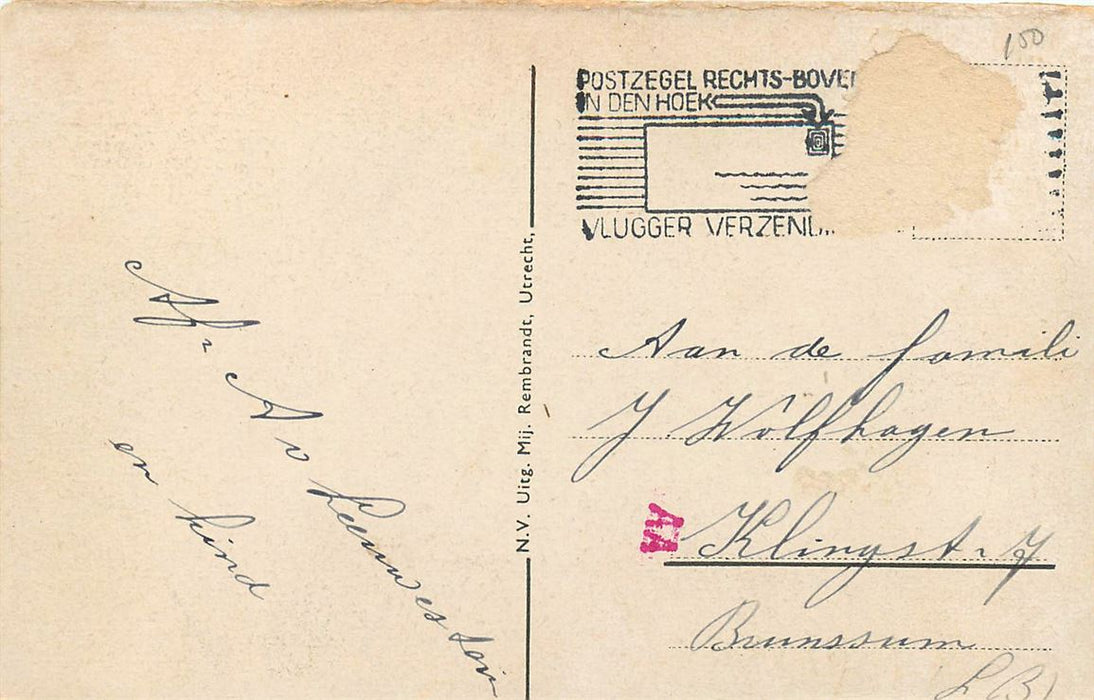 150
POSTZEGEL RECHTS-BOVE
IN DEN HOEK
VLUGGER VERZEND
N.V. Uitg. Mij. Rembrandt, Utrecht,
Afz A v Leeuwestein
en kind
Aan de famili
J. Wolfhagen
Klingst. 7
Brunssum
L B